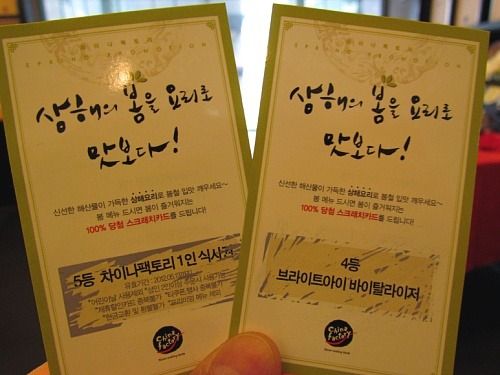 차이나팩토리
SPRING PROMOTION
상해의 봄을 요리로
맛보다!
신선한 해산물이 가득한 상해요리로 봄철 입맛 깨우세요~
봄 메뉴 드시면 봄이 즐거워지는
100% 당첨 스크래치카드를 드립니다!
5등 차이나팩토리 1인 식사권
*어린이날 사용제외
*제휴할인카드 중복불가
*현금교환 및 환불불가
China
Factory
상해의 봄을 요리로
맛보다!
신선한 해산물이 가득한 상해요리로 봄철 입맛 깨우세요~
봄 메뉴 드시면 봄이 즐거워지는
100% 당첨 스크래치카드를 드립니다!
4등
브라이트아이 바이탈라이저
China
Factory